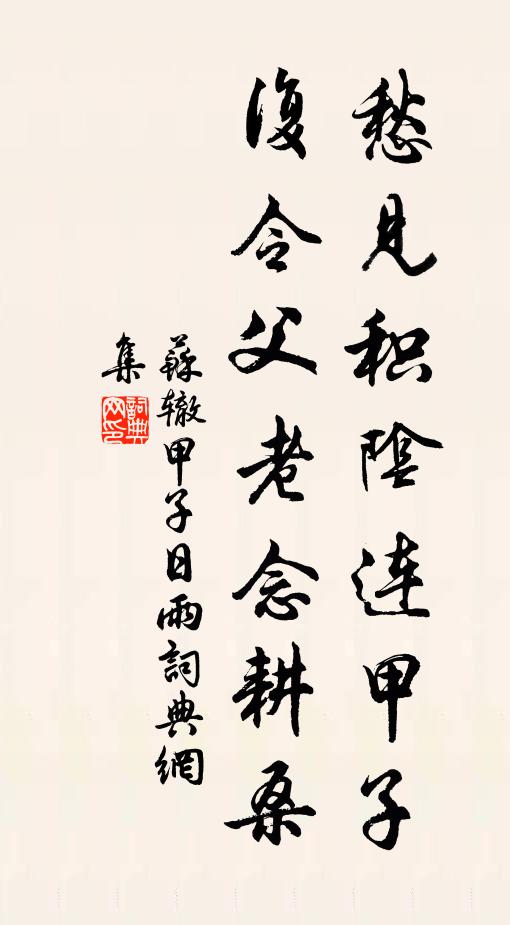 愁見积陰連甲子
復令父老念耕桑
蘇辙甲子日雨詞典網
集
詞典网印